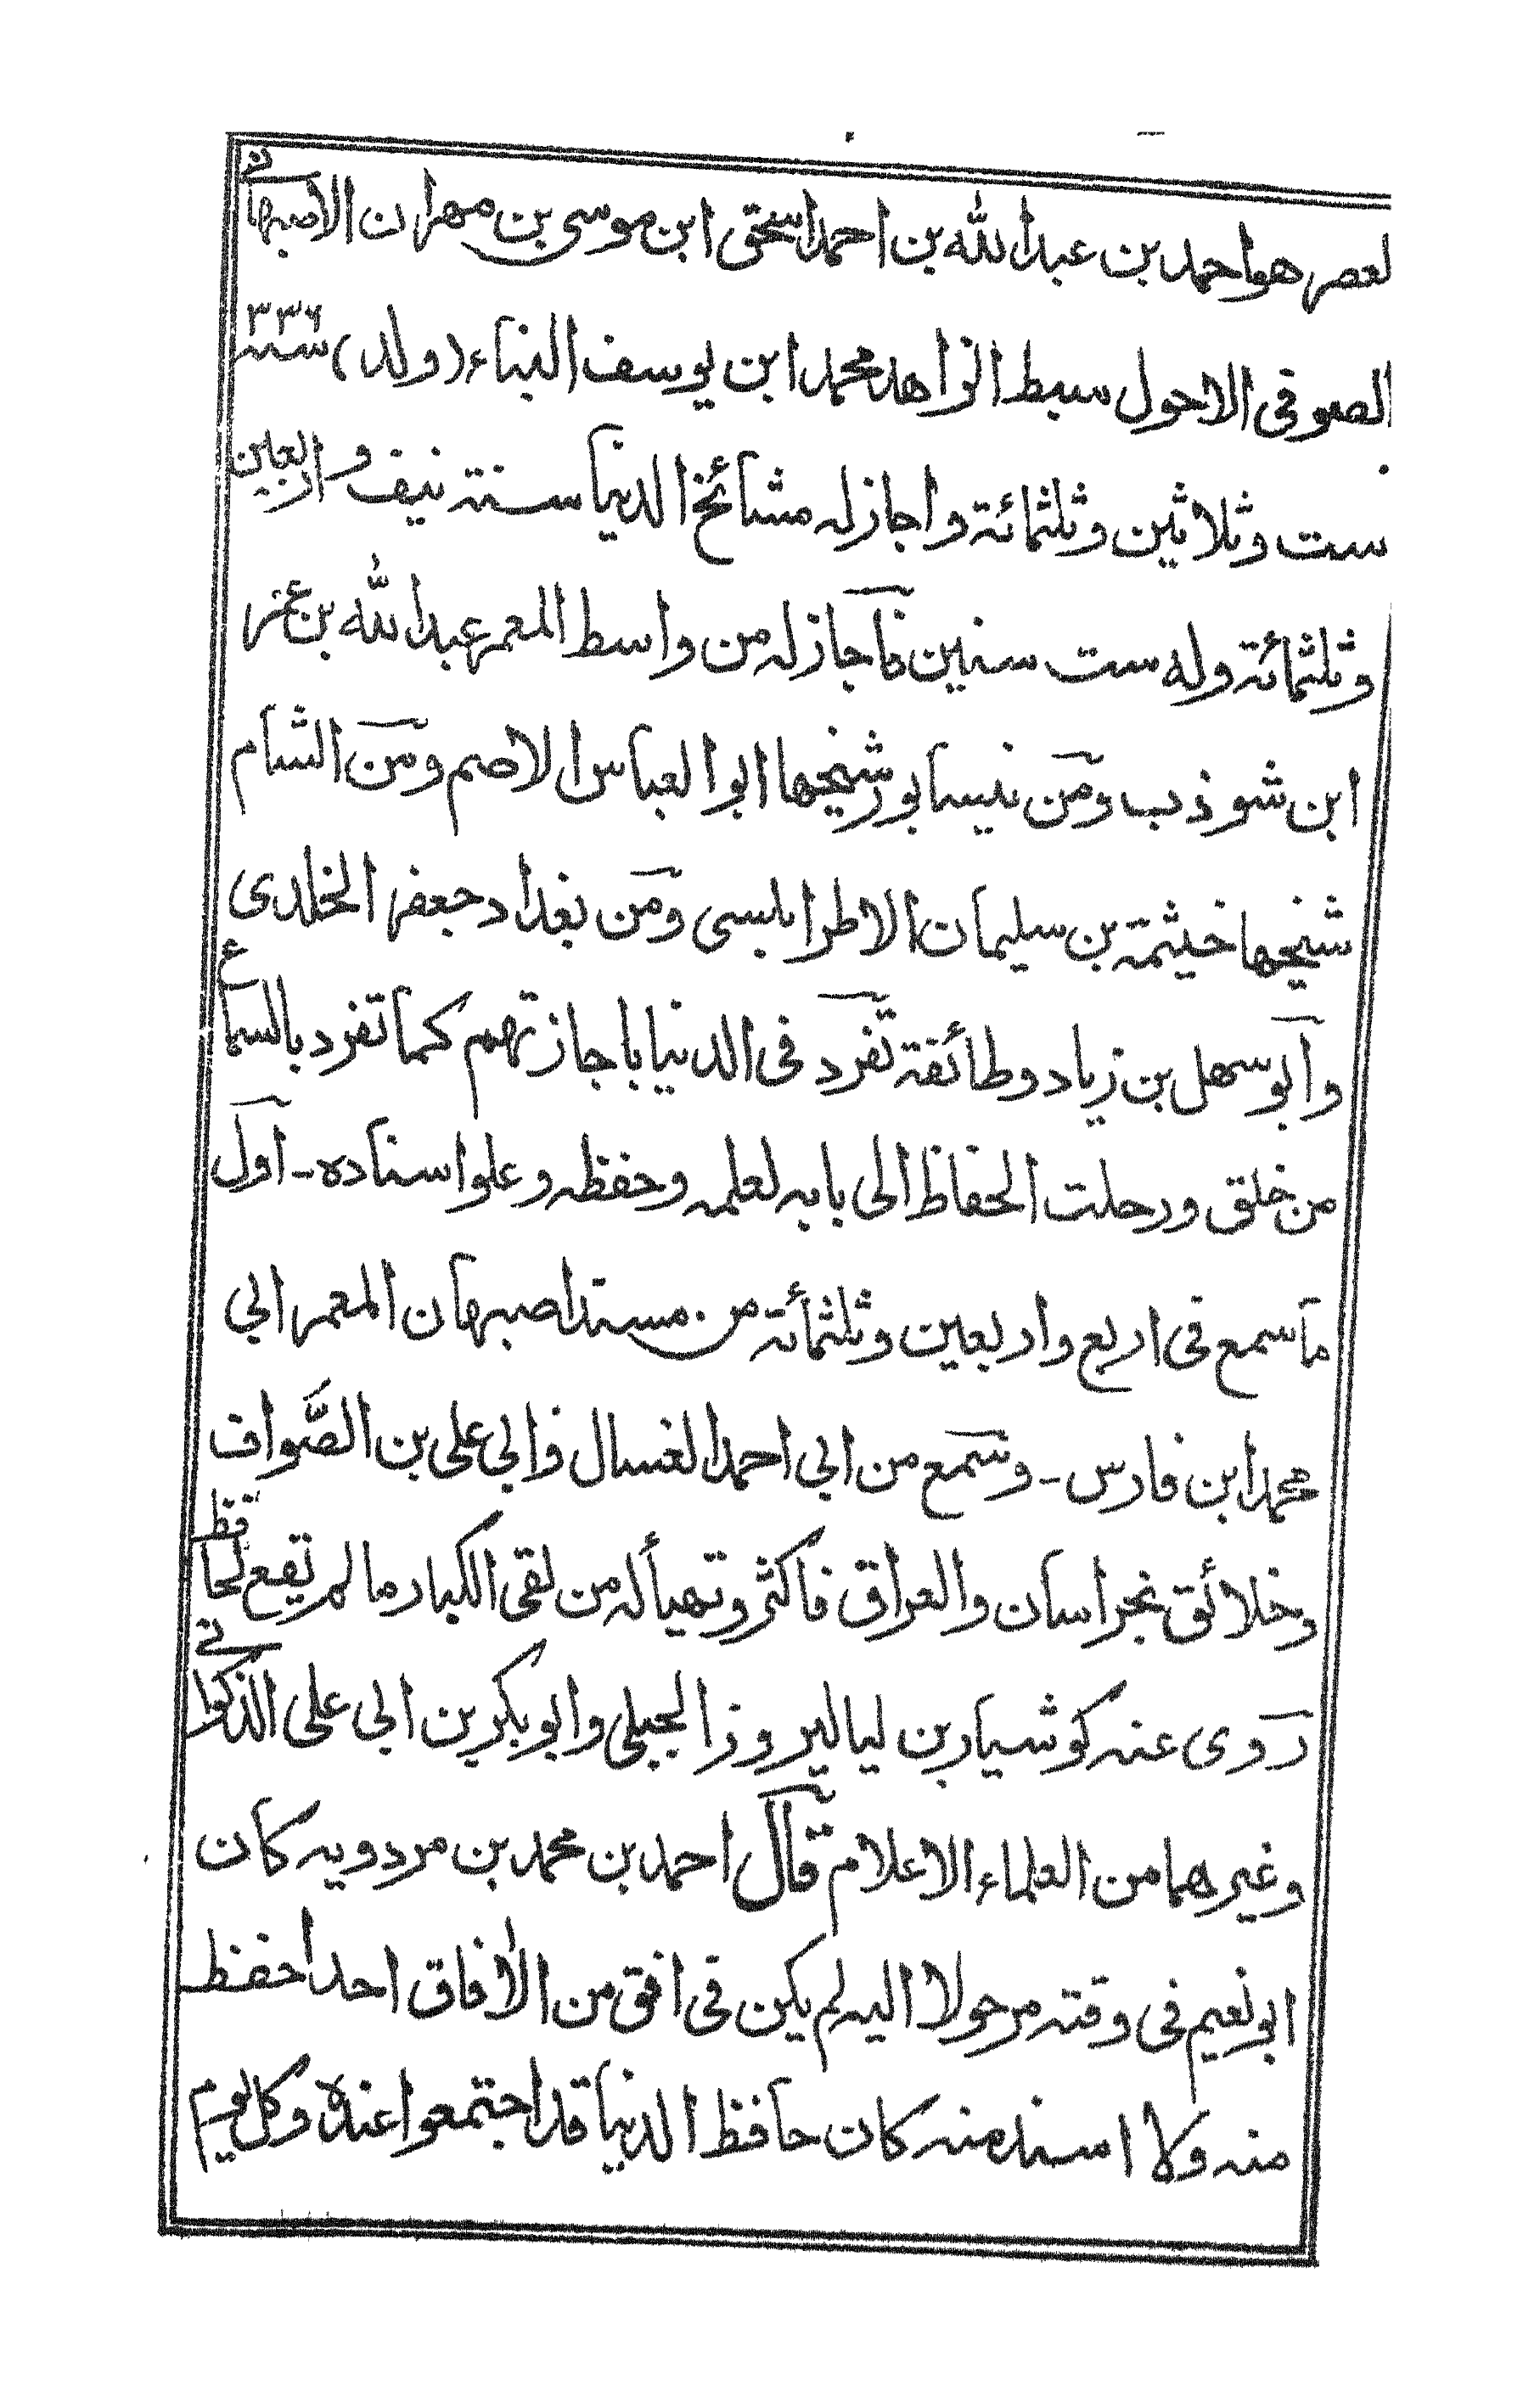 لعصر هو احمد بن عبد الله بن احمد اسحق ابن موسى بن مهران الاصبهانے
الصوفى الاحول سبط الزاهد محمد ابن يوسف البناء (ولد) سنہ ٣٣٦
ست وثلاثين وثلثمائة واجاز له مشائخ الدنيا سنة نيف واربعين
وثلثمائة وله ست سنين فاجاز له من واسط المعمر عبد الله بن عمر
ابن شوذب ومن نيسابور شيخها ابو العباس الاصم ومن الشام
شيخها خيثمة بن سليمان الاطرابلسى ومن بغداد جعفر الخلدى
وابو سهل بن زياد وطائفة تفرد فى الدنيا باجازتهم كما تفرد بالسماع
من خلق ورحلت الحفاظ الى بابه لعلمه وحفظه وعلو اسناده - اول
ما سمع فى اربع واربعين وثلثمائة من مسند اصبهان المعمر ابي
محمد ابن فارس - وسمع من ابي احمد الغسال وابي على بن الصَّواف
وخلائق بخراسان والعراق فاكثر وتهيأ له من لقى الكبار ما لم يقع لحافظ
روى عنه كوشيار بن لياليروز الجيلى وابو بكر بن ابي على الذكوانے
وغيرهما من العلماء الاعلام قال احمد بن محمد بن مردويه كان
ابو نعيم فى وقته مرحولا اليه لم يكن فى افق من الآفاق احد احفظ
منه ولا اسند منه كان حافظ الدنيا قد اجتمعوا عنده وكل يوم